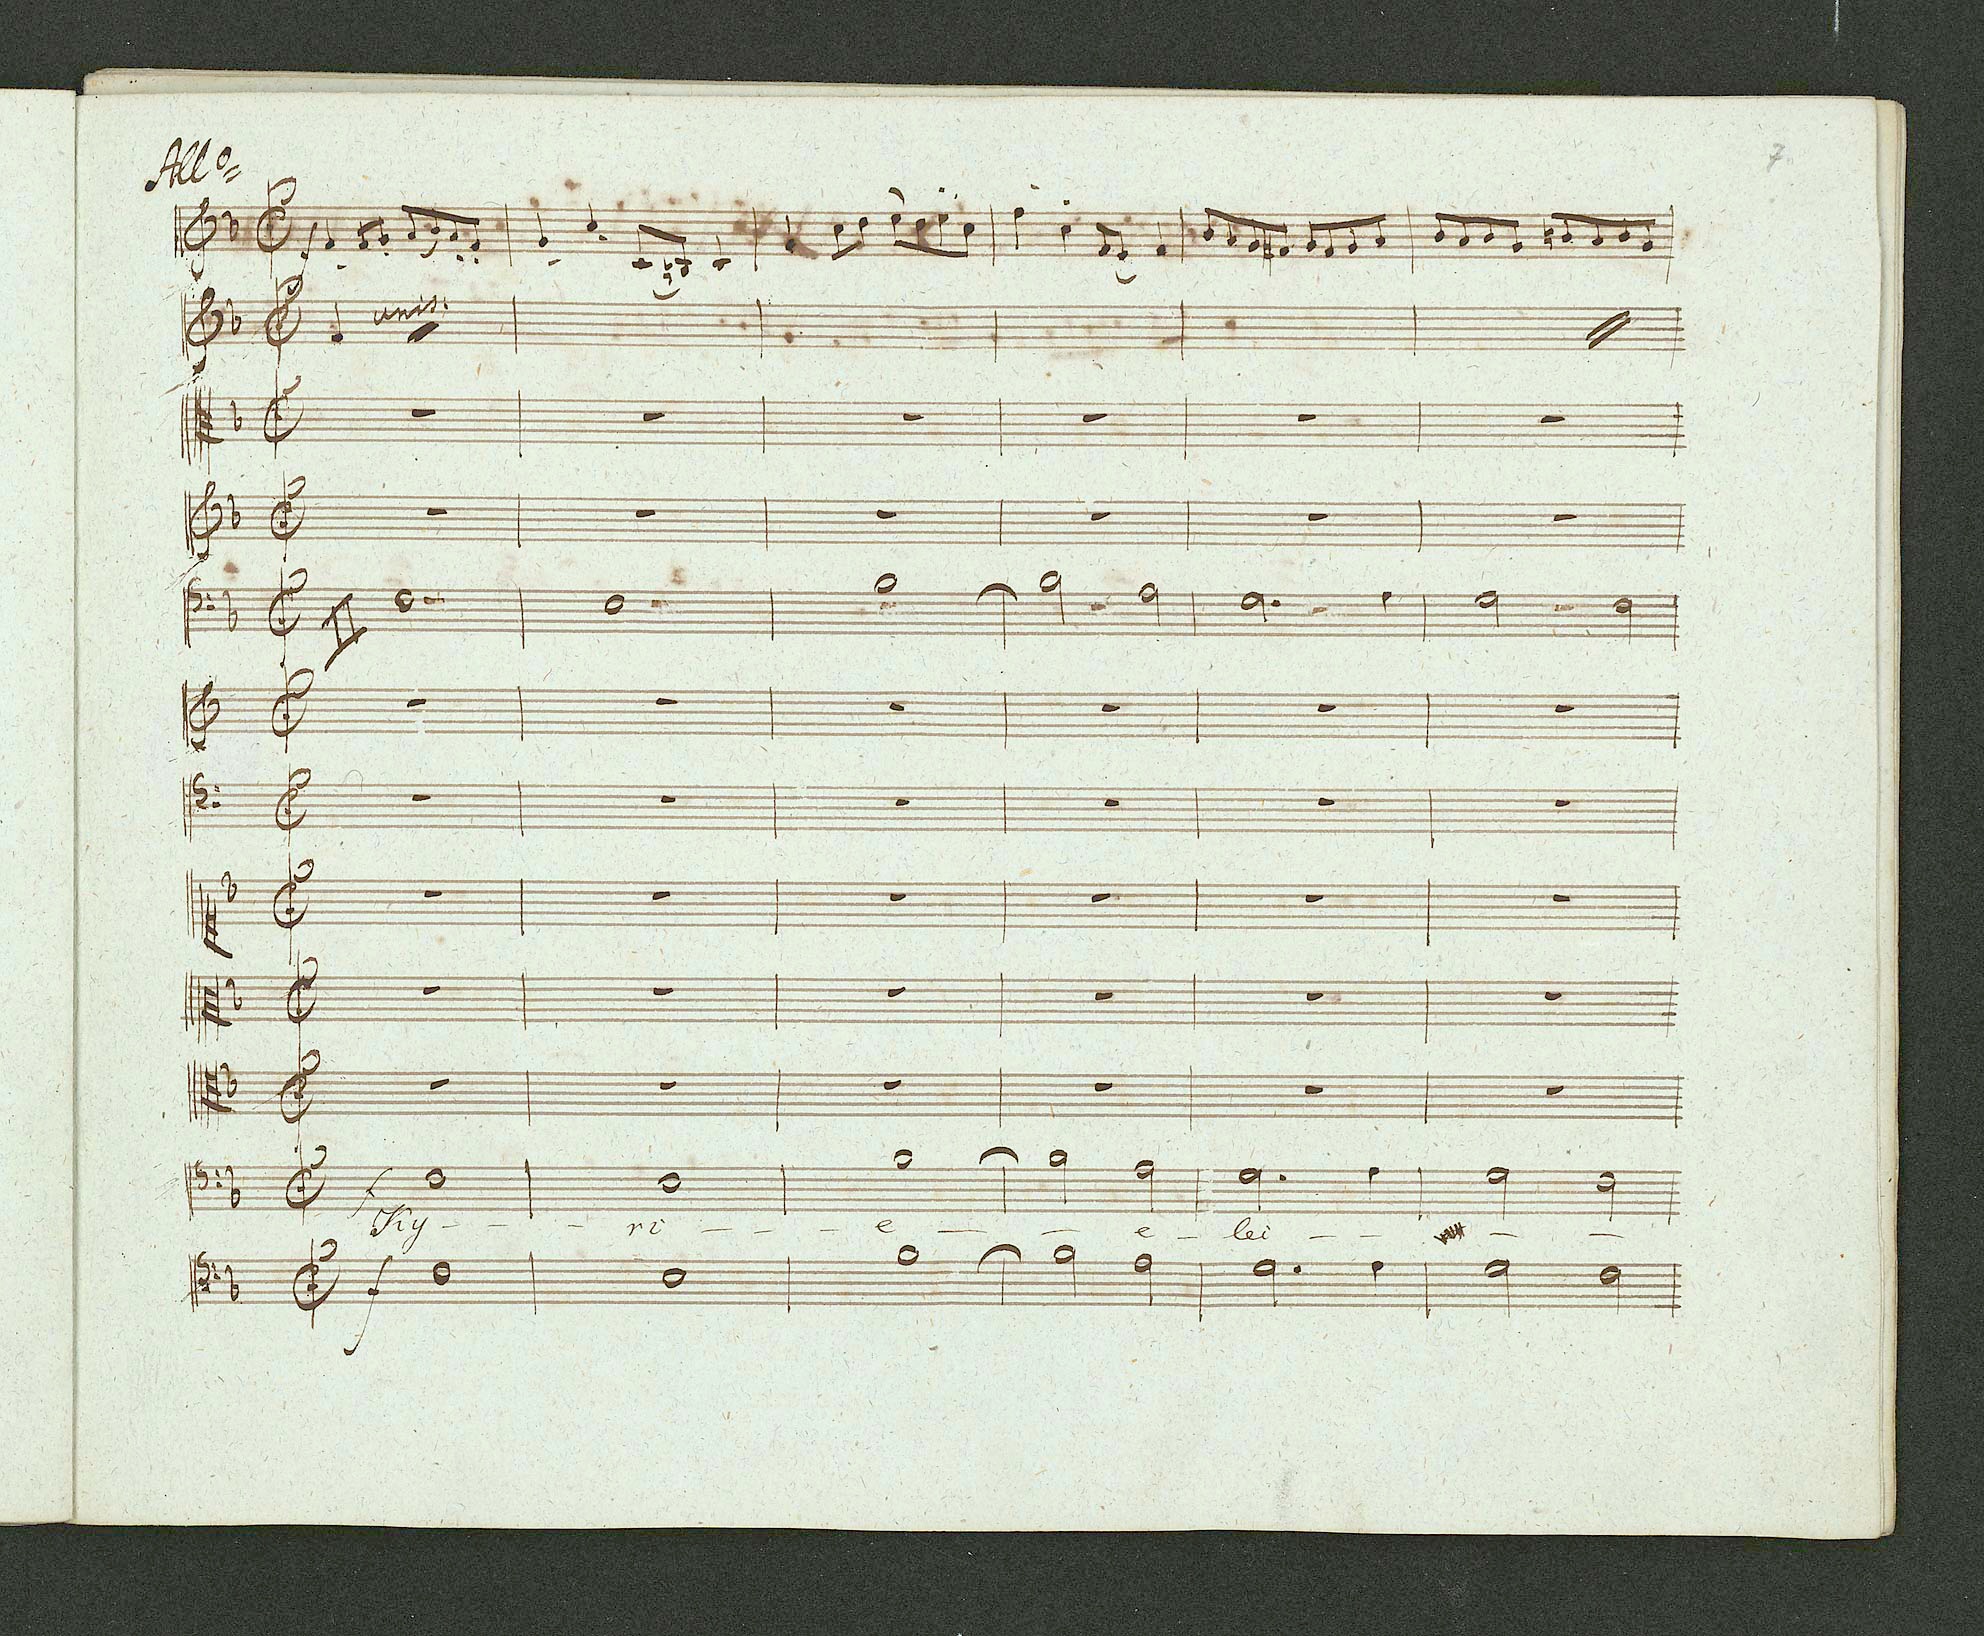 7
Allo
f
unis.
II
f
Ky - - - ri - - - e - - e - lei - - - -
f